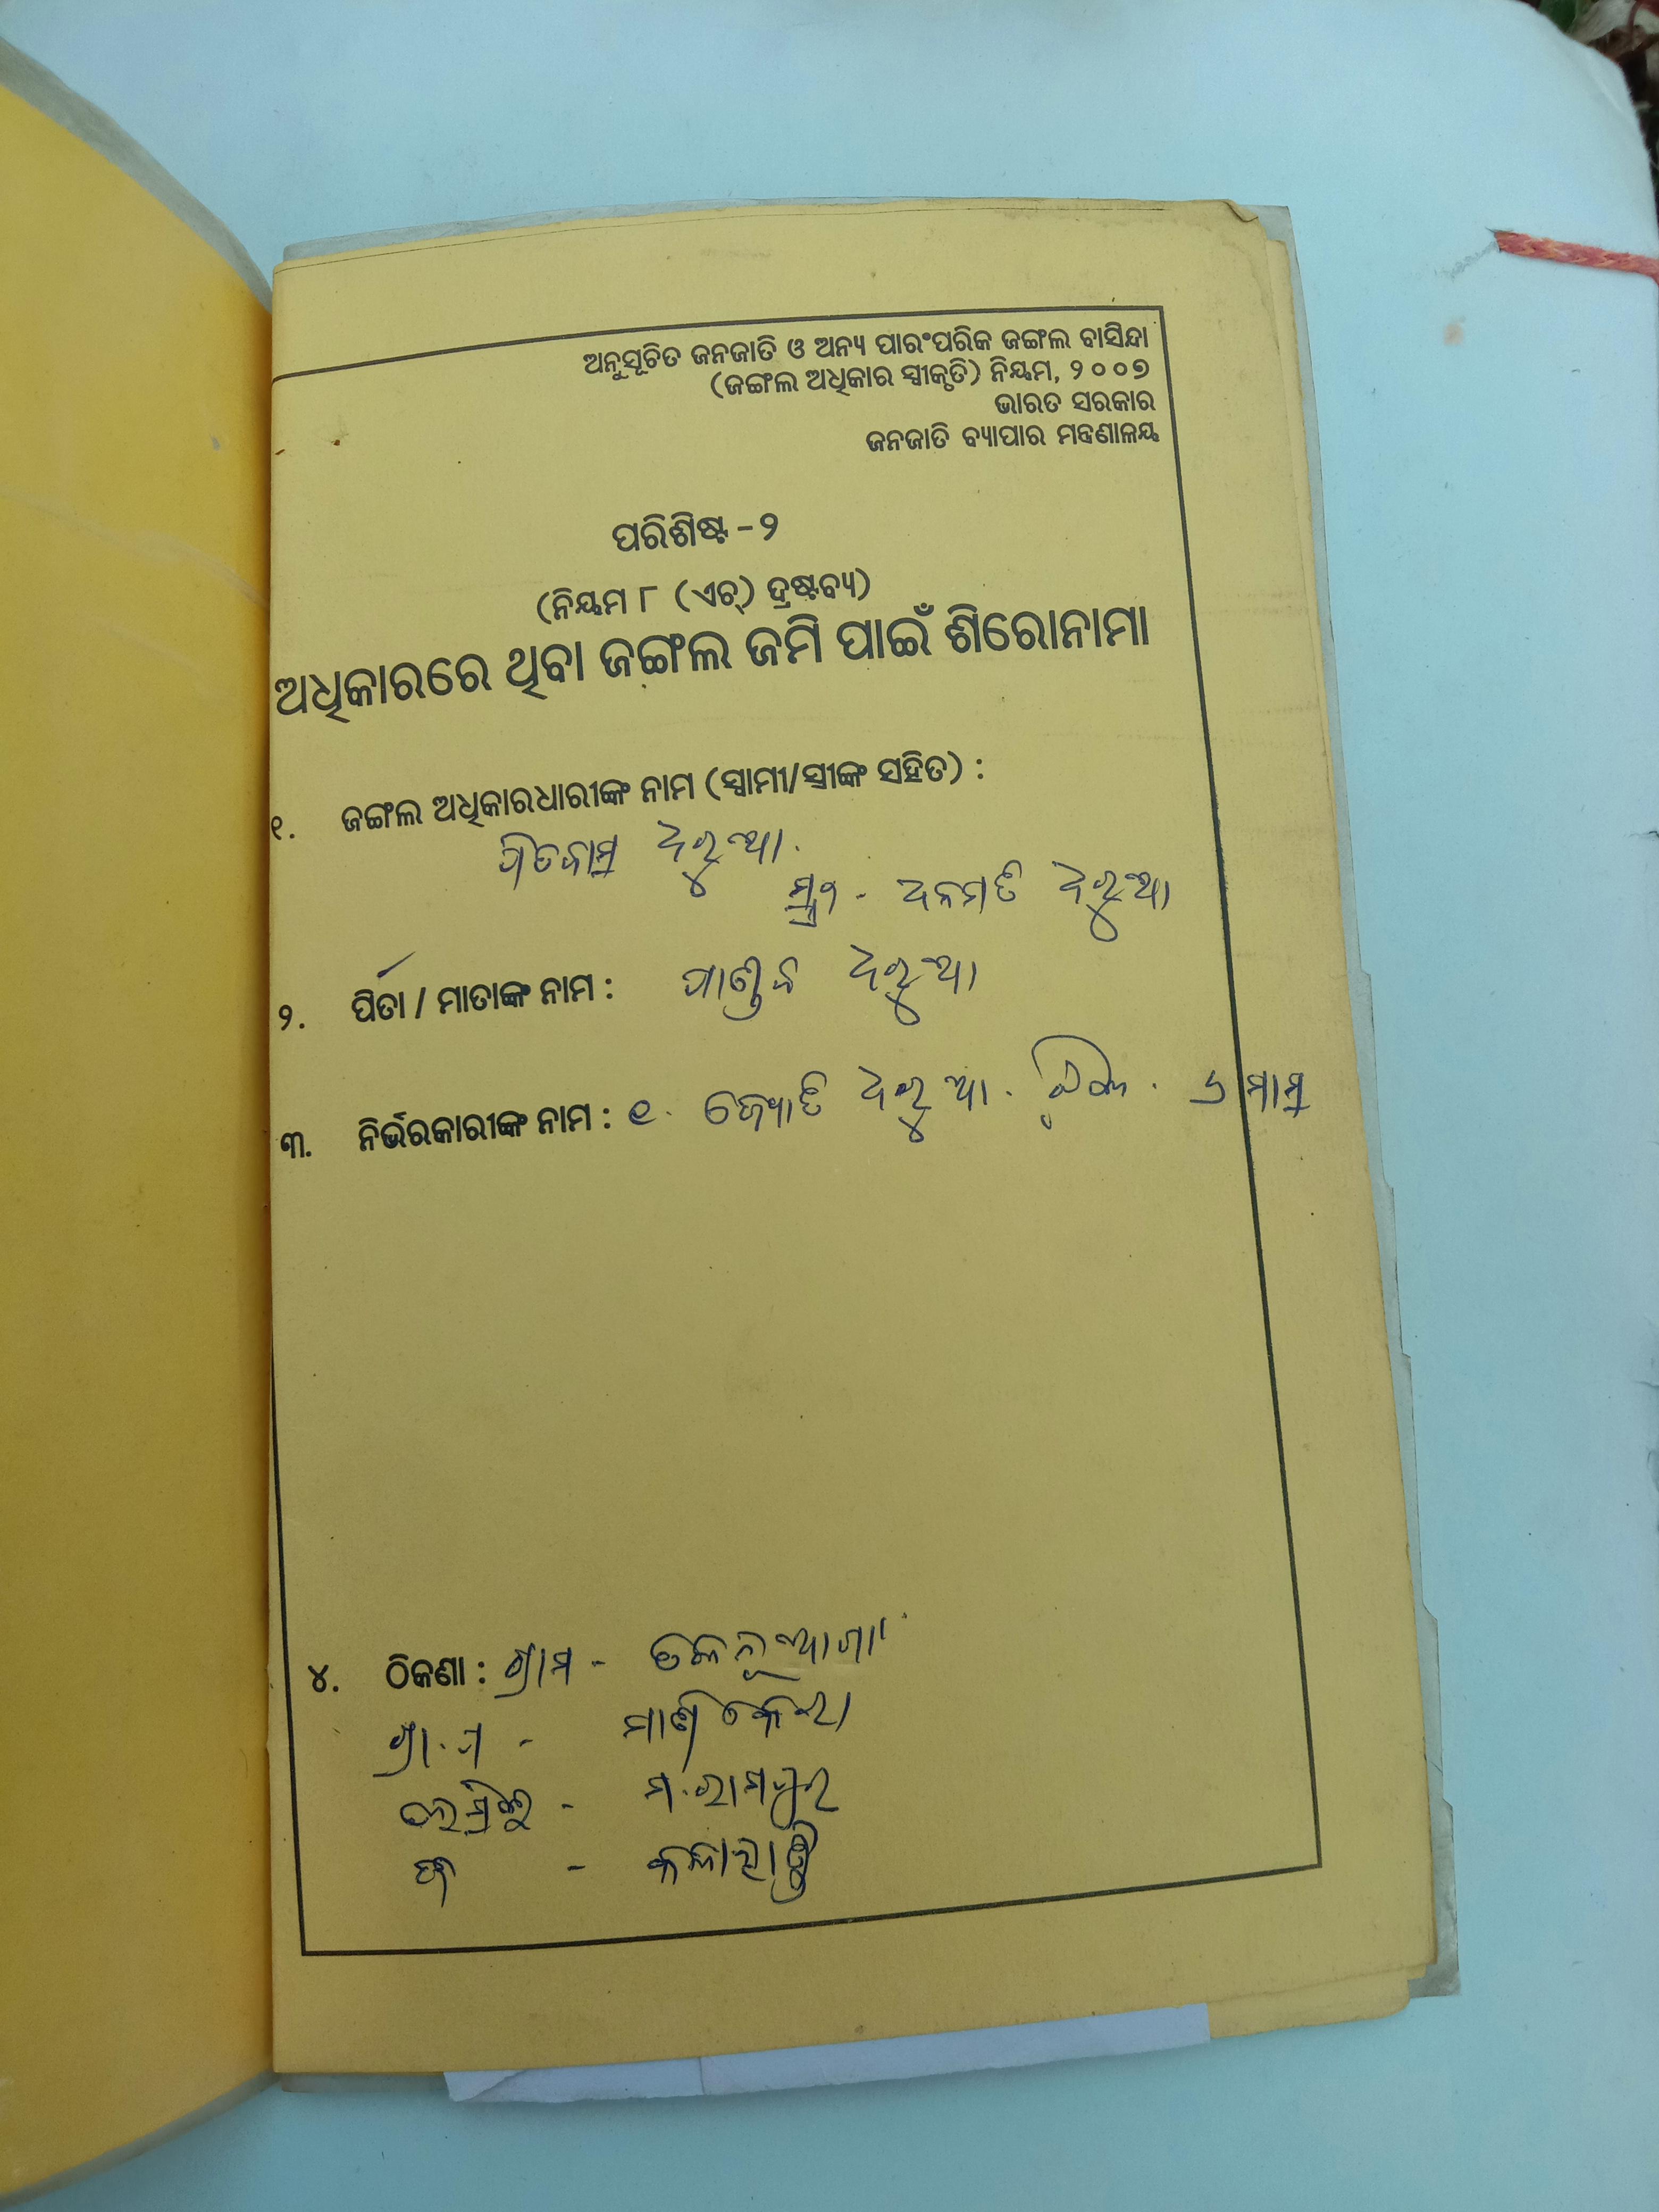 ଅନୁସୂଚିତ ଜନଜାତି ଓ ଅନ୍ୟ ପାରଂପରିକ ଜଙ୍ଗଲ ବାସିନ୍ଦା
(ଜଙ୍ଗଲ ଅଧିକାର ସ୍ୱୀକୃତି) ନିୟମ, ୨୦୦୭
ଭାରତ ସରକାର
ଜନଜାତି ବ୍ୟାପାର ମନ୍ତ୍ରଣାଳୟ
ପରିଶିଷ୍ଟ -୨
(ନିୟମ ୮ (ଏଚ୍) ଦ୍ରଷ୍ଟବ୍ୟ)
ଅଧିକାରରେ ଥିବା ଜଙ୍ଗଲ ଜମି ପାଇଁ ଶିରୋନାମା
୧. ଜଙ୍ଗଲ ଅଧିକାରଧାରୀଙ୍କ ନାମ (ସ୍ୱାମୀ/ସ୍ତ୍ରୀଙ୍କ ସହିତ) :
ପିତବାସ ଧରୁଆ
ସ୍ତ୍ରୀ - ଧନମତି ଧରୁଆ
୨. ପିତା / ମାତାଙ୍କ ନାମ : ପାଣ୍ଡବ ଧରୁଆ
୩. ନିର୍ଭରକାରୀଙ୍କ ନାମ : ୧. ଜ୍ୟୋତି ଧରୁଆ . ଝିଅ . ୬ ମାସ
୪. ଠିକଣା : ଗ୍ରାମ -
ଗ୍ରା.ପ - ମାଣିକେରା
- ମ.ରାମପୁର
ଜି - କଳାହାଣ୍ଡି